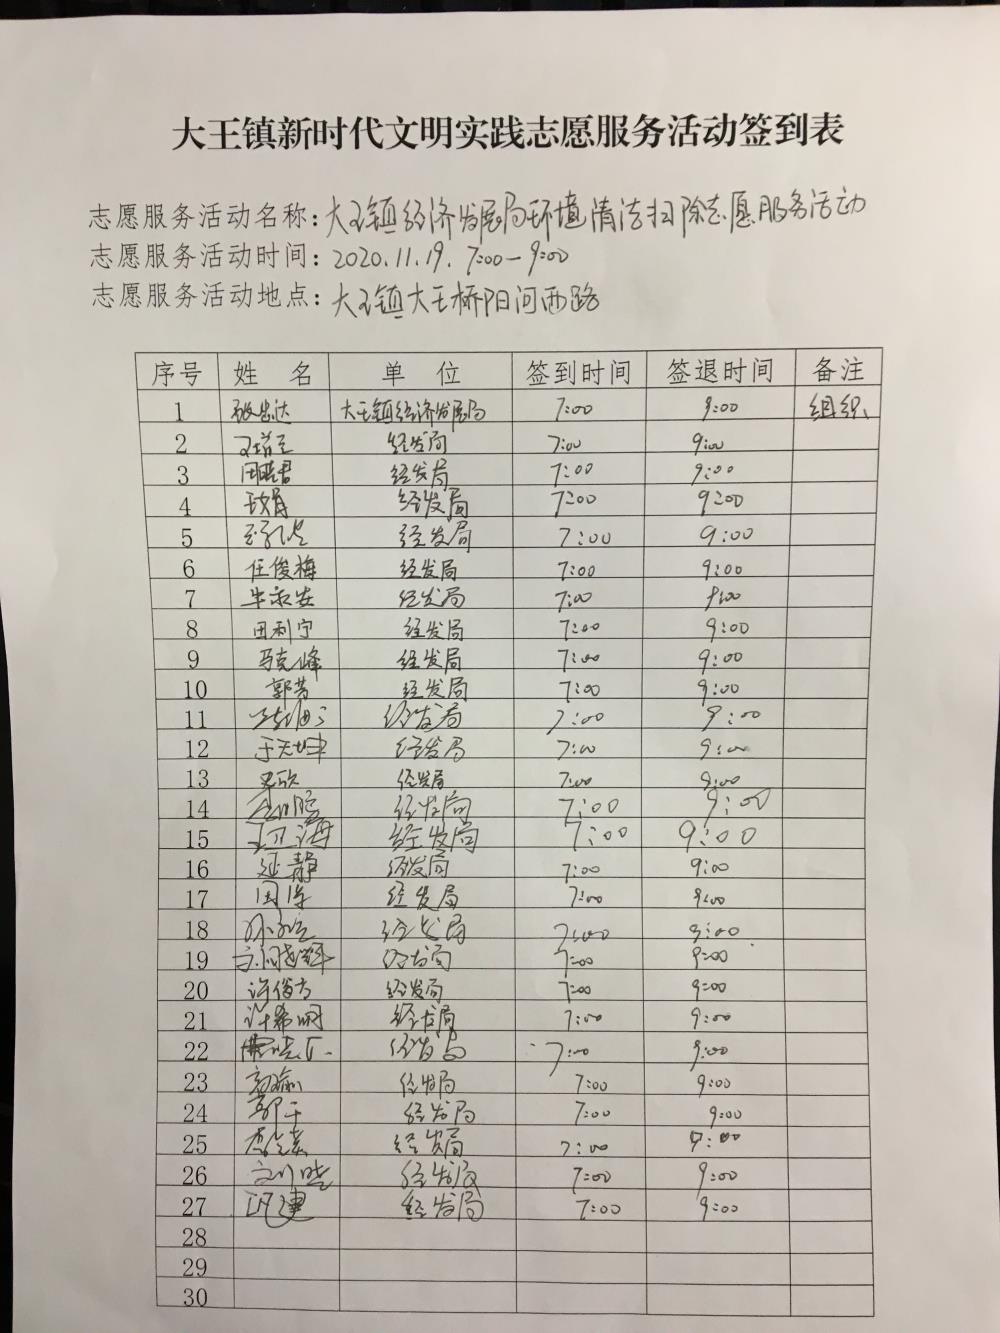 大王镇新时代文明实践志愿服务活动签到表
志愿服务活动名称：大王镇经济发展局环境清洁扫除志愿服务活动
志愿服务活动时间：2020.11.19. 7:00-9:00
志愿服务活动地点：大王镇大王桥阳河西路
序号 姓 名 单 位 签到时间 签退时间 备注
1 大王镇经济发展局 7:00 9:00 组织
2 经发局 7:00 9:00
3 经发局 7:00 9:00
4 经发局 7:00 9:00
5 经发局 7:00 9:00
6 任俊梅 经发局 7:00 9:00
7 牛永安 经发局 7:00 9:00
8 田利宁 经发局 7:00 9:00
9 马克峰 经发局 7:00 9:00
10 郭芳 经发局 7:00 9:00
11 经发局 7:00 9:00
12 于天坤 经发局 7:00 9:00
13 经发局 7:00 9:00
14 经发局 7:00 9:00
15 王卫海 经发局 7:00 9:00
16 延静 经发局 7:00 9:00
17 经发局 7:00 9:00
18 经发局 7:00 9:00
19 经发局 7:00 9:00
20 许俊方 经发局 7:00 9:00
21 许希明 经发局 7:00 9:00
22 经发局 7:00 9:00
23 经发局 7:00 9:00
24 经发局 7:00 9:00
25 经发局 7:00 9:00
26 经发局 7:00 9:00
27 经发局 7:00 9:00
28
29
30